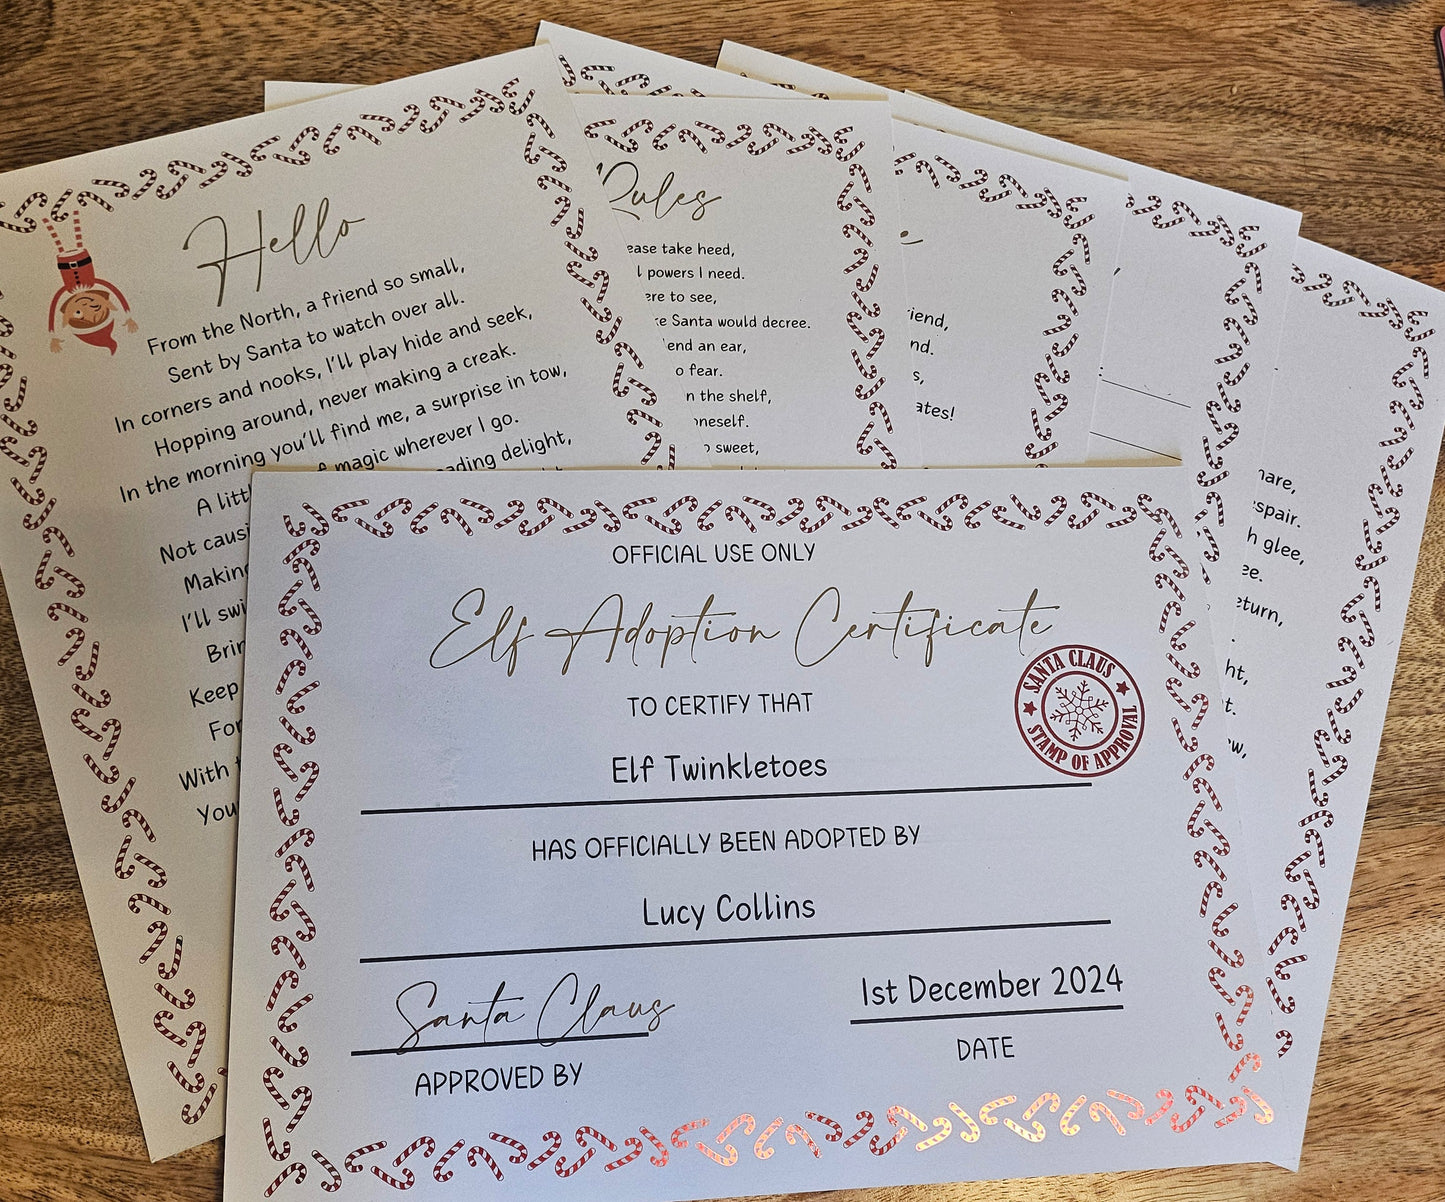 Hello
From the North, a friend so small,
Sent by Santa to watch over all.
In corners and nooks, I'll play hide and seek,
Hopping around, never making a creak.
In the morning you'll find me, a surprise in tow,
A litt
magic wherever I go.
Not caus
ading delight,
Making
I'll swi
Brin
Keep
For
With
You
Rules
ease take heed,
l powers I need.
ere to see,
ke Santa would decree.
end an ear,
o fear.
n the shelf,
oneself.
o sweet,
e
riend,
nd.
s,
ates!
hare,
espair.
h glee,
ee.
eturn,
ht,
t.
w,
OFFICIAL USE ONLY
Elf Adoption Certificate
TO CERTIFY THAT
SANTA CLAUS
STAMP OF APPROVAL
Elf Twinkletoes
HAS OFFICIALLY BEEN ADOPTED BY
Lucy Collins
Santa Claus
1st December 2024
APPROVED BY
DATE